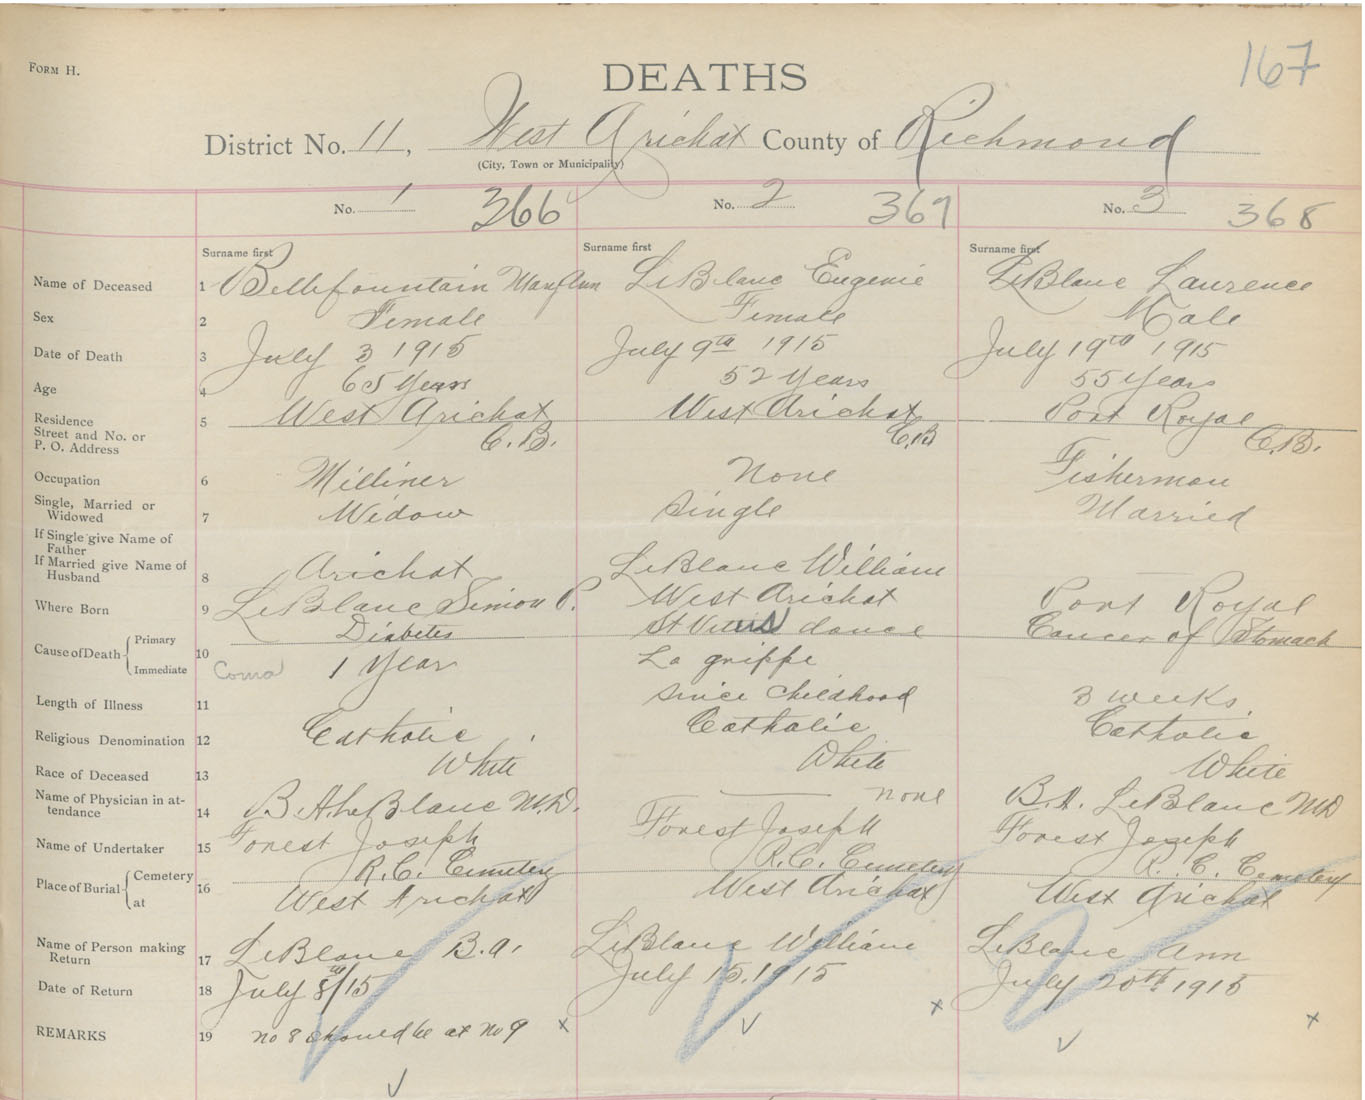 FORM H.
167
DEATHS
District No. 11, West Arichat County of Richmond
(City, Town or Municipality)
No. 1 366 No. 2 367 No. 3 368
Surname first Surname first Surname first
Name of Deceased 1 Bellefountain Mary Ann LeBlanc Eugenie LeBlanc Laurence
Sex 2 Female Female Male
Date of Death 3 July 3 1915 July 9th 1915 July 19th 1915
Age 4 65 Years 52 Years 55 Years
Residence Street and No. or P. O. Address 5 West Arichat C.B. West Arichat C.B. Port Royal C.B.
Occupation 6 Milliner None Fisherman
Single, Married or Widowed 7 Widow Single Married
If Single give Name of Father
If Married give Name of Husband 8 Arichat LeBlanc William —
Where Born 9 LeBlanc Simon P. West Arichat Port Royal
Cause of Death { Primary Diabetes St Vitus dance Cancer of Stomach
Immediate 10 Coma 1 Year La grippe
Length of Illness 11 Since Childhood 3 weeks
Religious Denomination 12 Catholic Catholic Catholic
Race of Deceased 13 White White White
Name of Physician in attendance 14 B.A. LeBlanc M.D. — none B.A. LeBlanc MD
Name of Undertaker 15 Forest Joseph Forest Joseph Forest Joseph
Place of Burial { Cemetery R.C. Cemetery R.C. Cemetery R.C. Cemetery
at 16 West Arichat West Arichat West Arichat
Name of Person making Return 17 LeBlanc B.A. LeBlanc William LeBlanc Ann
Date of Return 18 July 8th/15 July 15. 1915 July 20th 1915
REMARKS 19 no 8 should be at no 9 x x x